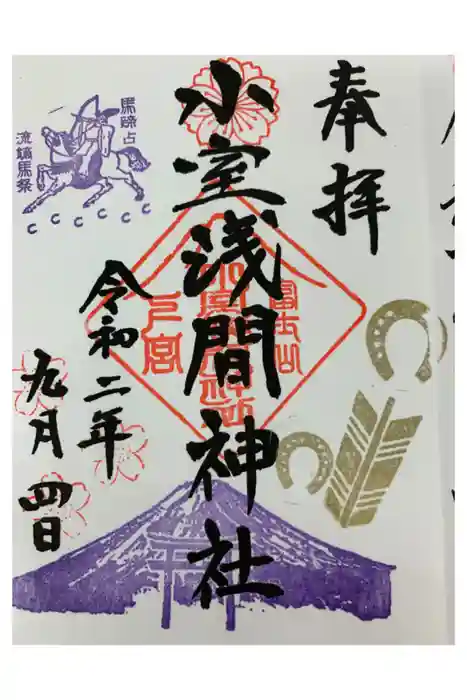 奉拝
小室浅間神社
富士山
下宮
令和二年
九月四日
馬蹄占
流鏑馬祭